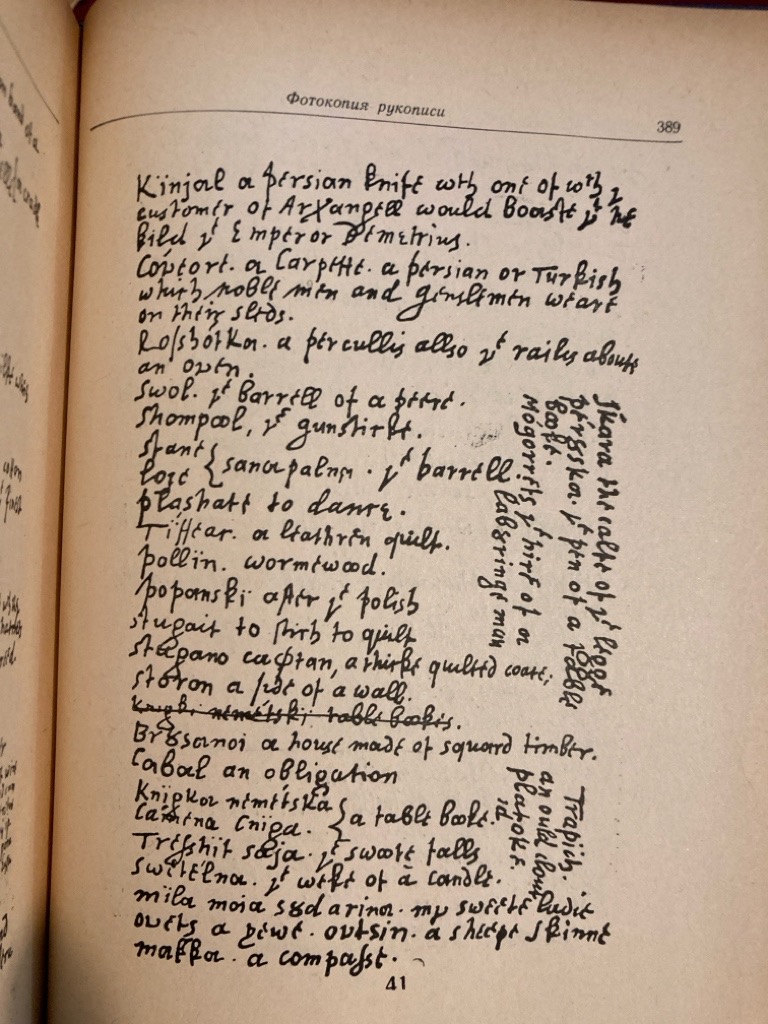 Фотокопия рукописи
389
Kinjal a persian knife wth one of wch
customer of Arχangell would boaste yt he
kild ye Emperor Demetrius.
Coveor. a Carpette. a persian or Turkish
which noble men and gentlemen weare
on their sleds.
Rosshotka. a percullis allso ye railes aboute
an oven.
Swol. ye barrell of a peece.
Shompool, ye gunsticke.
stane
loze { sanapalnη. ye barrell.
plashatt to dance.
Tiffeac. a leathren quilt.
pollin. wormewood.
popanski after ye polish
stugait to stich to quilt
stegano caφtan, a thicke quilted coate,
storon a side of a wall.
Knighi nemetski table bookes.
Brȣsanoi a house made of squard timber.
Cabal an obligation
Knigka nemetska
Camena Cniga. } a table booke.
Tresshit saja. ye swoote falls
swetelna. ye weke of a candle.
mila moia sȣdarina. my sweete ladie
ovets a yewe. ovtsin. a sheepe skinne
makka. a compasse.
Ikara the calfe of ye legge
pérȣsska. ye pen of a table
booke.
Mogorrets ye hire of a
labȣringe man
Trapich.
an ould clout
platoke. id
41